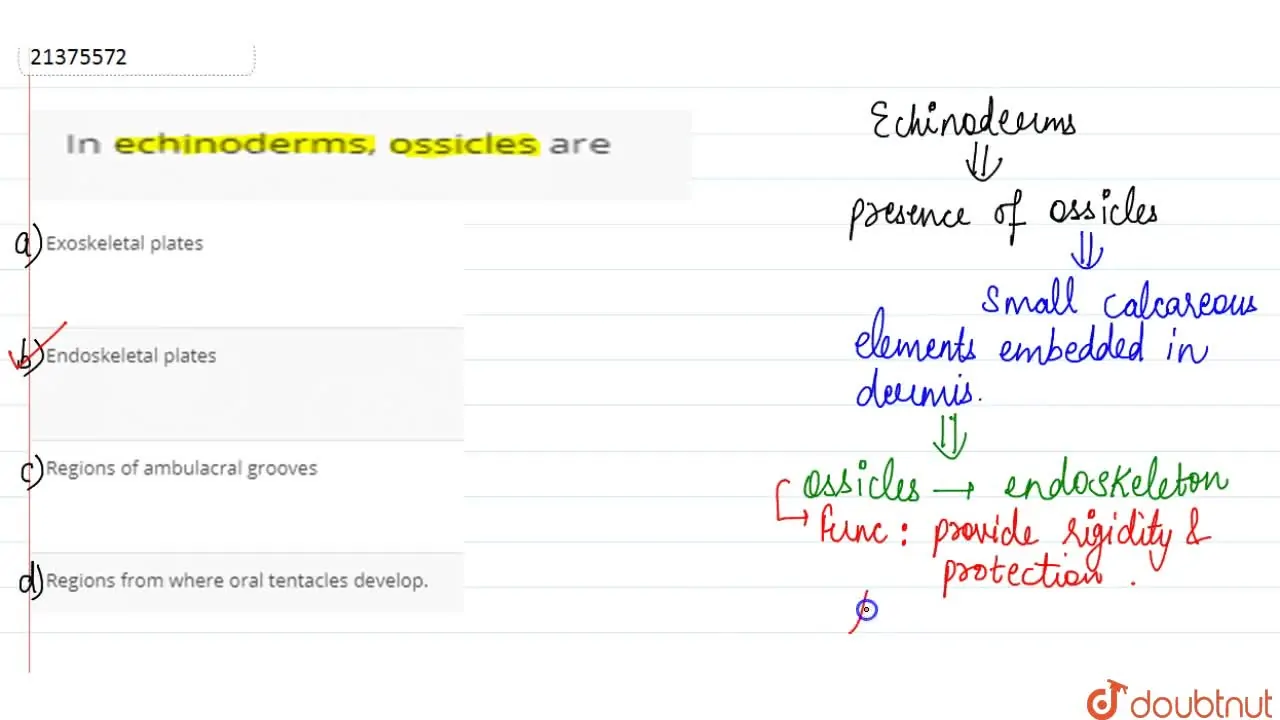 21375572
In echinoderms, ossicles are
a) Exoskeletal plates
b) Endoskeletal plates
c) Regions of ambulacral grooves
d) Regions from where oral tentacles develop.
Echinoderms
⇓
presence of ossicles
⇓
small calcareous
elements embedded in
dermis.
⇓
ossicles → endoskeleton
↳ func : provide rigidity &
protection .
doubtnut